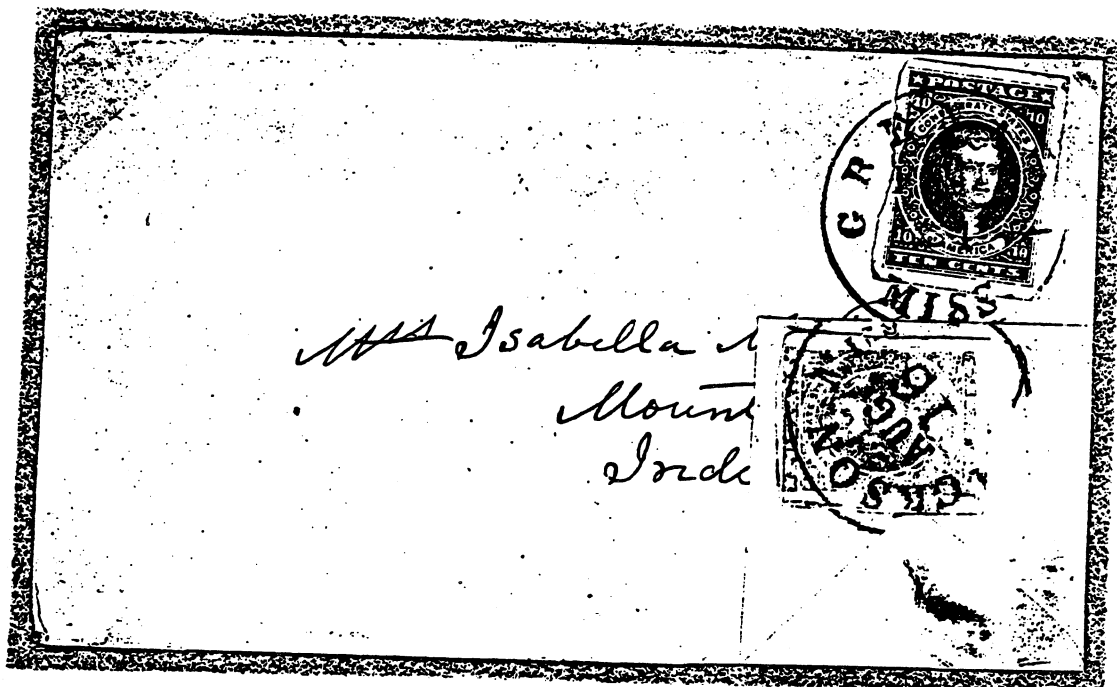 POSTAGE
10 10
CONFEDERATE STATES
AMERICA
10 10
TEN CENTS
GRA
MISS
Mrs Isabella
Mount
Inde
JACKSON
MISS
AUG
10